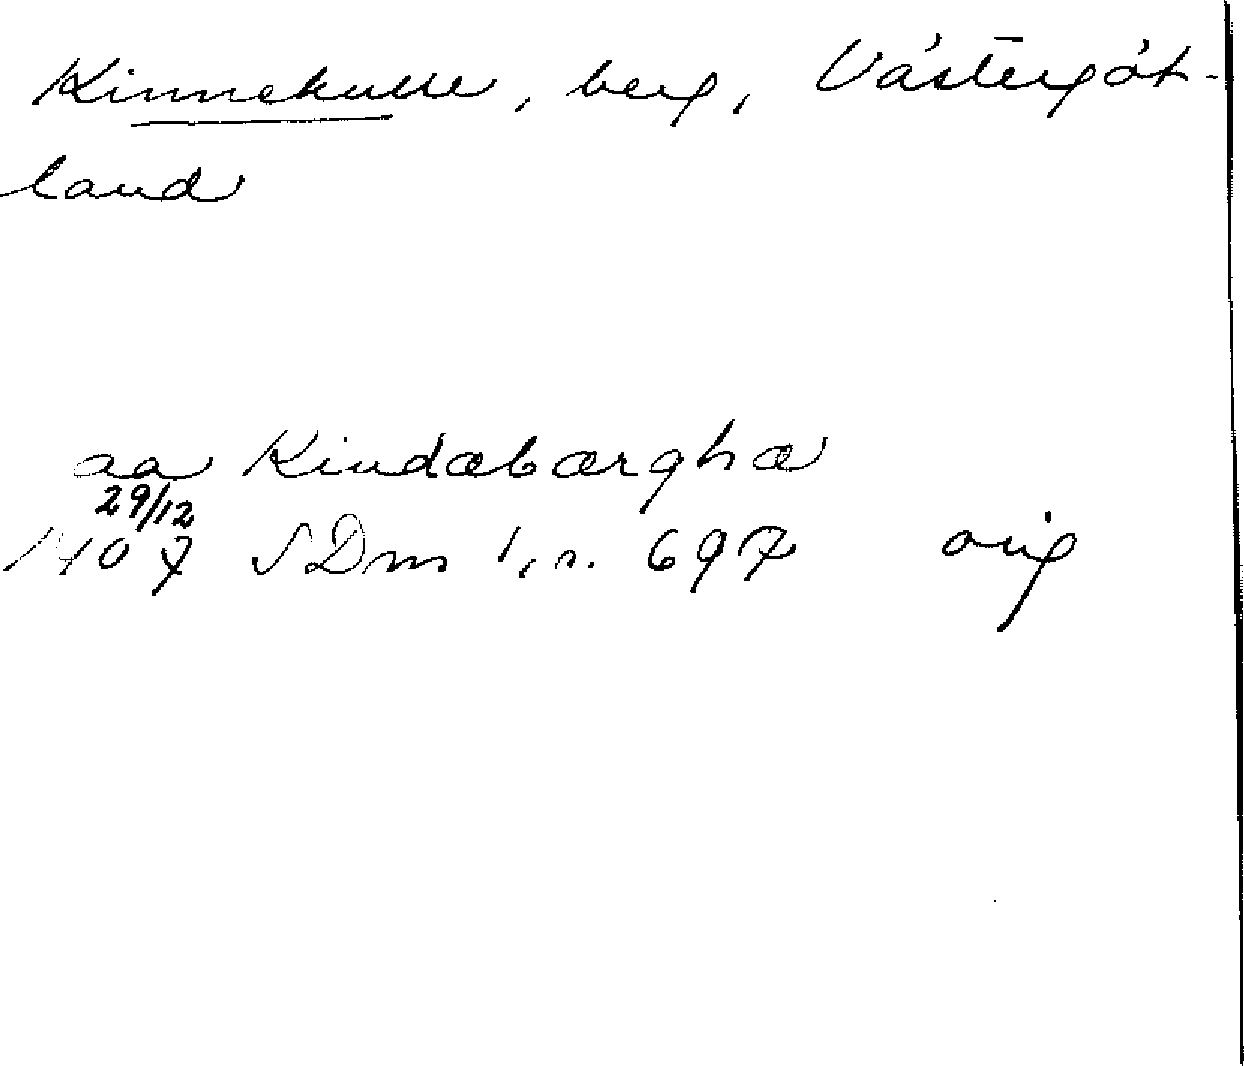 Kinnekulle, berg, Västergöt-
land
aa Kindæbærghæ
29/12
1407 SDns 1, s. 697 orig